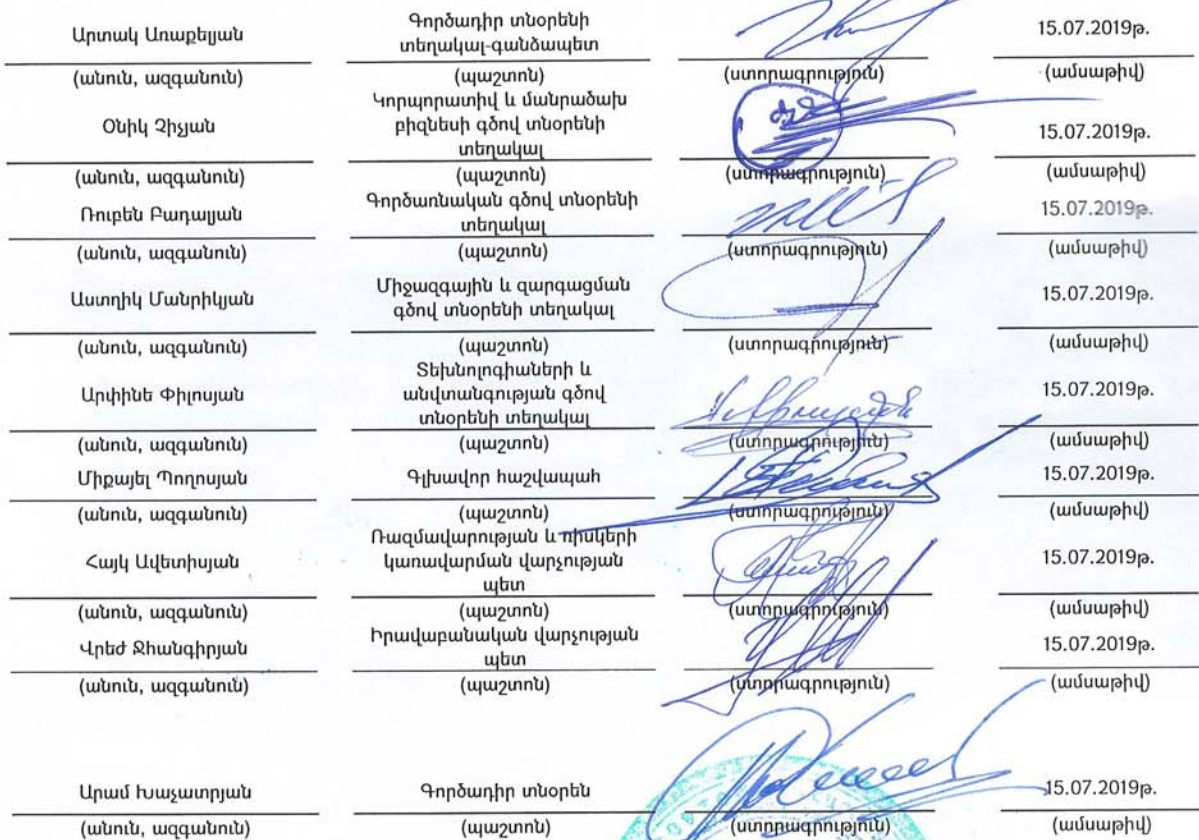 Արտակ Առաքելյան
Գործադիր տնօրենի
տեղակալ-գանձապետ
15.07.2019թ.
(անուն, ազգանուն) (պաշտոն) (ստորագրություն) (ամսաթիվ)
Օնիկ Չիչյան
Կորպորատիվ և մանրածախ
բիզնեսի գծով տնօրենի
տեղակալ
15.07.2019թ.
(անուն, ազգանուն) (պաշտոն) (ստորագրություն) (ամսաթիվ)
Ռուբեն Բադալյան
Գործառնական գծով տնօրենի
տեղակալ
15.07.2019թ.
(անուն, ազգանուն) (պաշտոն) (ստորագրություն) (ամսաթիվ)
Աստղիկ Մանրիկյան
Միջազգային և զարգացման
գծով տնօրենի տեղակալ
15.07.2019թ.
(անուն, ազգանուն) (պաշտոն) (ստորագրություն) (ամսաթիվ)
Արփինե Փիլոսյան
Տեխնոլոգիաների և
անվտանգության գծով
տնօրենի տեղակալ
15.07.2019թ.
(անուն, ազգանուն) (պաշտոն) (ստորագրություն) (ամսաթիվ)
Միքայել Պողոսյան
Գլխավոր հաշվապահ
15.07.2019թ.
(անուն, ազգանուն) (պաշտոն) (ստորագրություն) (ամսաթիվ)
Հայկ Ավետիսյան
Ռազմավարության և ռիսկերի
կառավարման վարչության
պետ
15.07.2019թ.
(անուն, ազգանուն) (պաշտոն) (ստորագրություն) (ամսաթիվ)
Վրեժ Ջհանգիրյան
Իրավաբանական վարչության
պետ
15.07.2019թ.
(անուն, ազգանուն) (պաշտոն) (ստորագրություն) (ամսաթիվ)
Արամ Խաչատրյան
Գործադիր տնօրեն
15.07.2019թ.
(անուն, ազգանուն) (պաշտոն) (ստորագրություն) (ամսաթիվ)